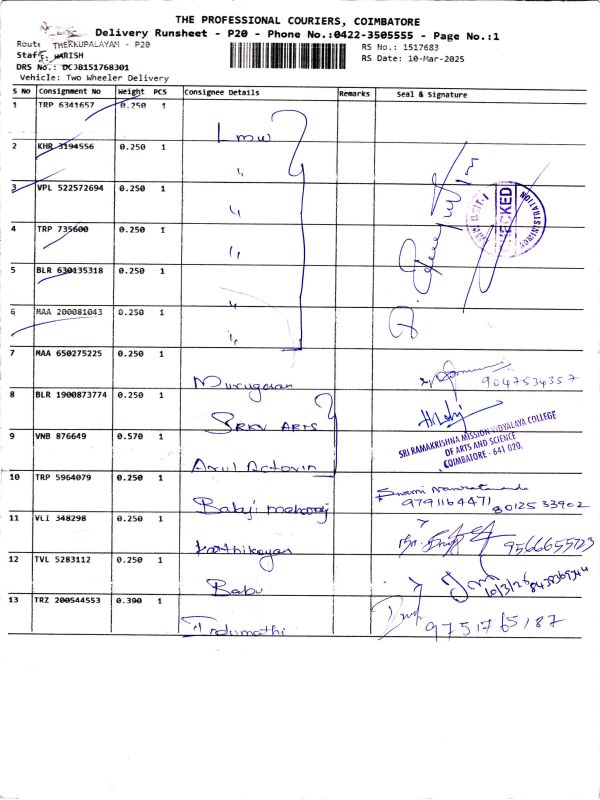 THE PROFESSIONAL COURIERS, COIMBATORE
Delivery Runsheet - P20 - Phone No.:0422-3505555 - Page No.:1
Route THEKKUPALAYAM - P20
RS No.: 1517683
Staff: HARISH
RS Date: 10-Mar-2025
DRS No.: DCJB151768301
Vehicle: Two Wheeler Delivery
S No Consignment No Weight PCS Consignee Details Remarks Seal & Signature
1 TRP 6341657 0.250 1 Lmw
2 KHR 3194556 0.250 1 "
3 VPL 522572694 0.250 1 "
4 TRP 735600 0.250 1 "
5 BLR 630135318 0.250 1 "
6 MAA 200081043 0.250 1 "
CHECKED
7 MAA 650275225 0.250 1 Murugesan 9047534357
8 BLR 1900873774 0.250 1 SRKV ARTS
SRI RAMAKRISHNA MISSION VIDYALAYA COLLEGE
OF ARTS AND SCIENCE
COIMBATORE - 641 020.
9 VNB 876649 0.570 1 Arul
10 TRP 5964079 0.250 1 Babaji maharaj Swami
9791164471 8012533902
11 VLI 348298 0.250 1 Karthikeyan 9566655723
12 TVL 5283112 0.250 1 Babu
13 TRZ 200544553 0.390 1 Indumathi 9751765187